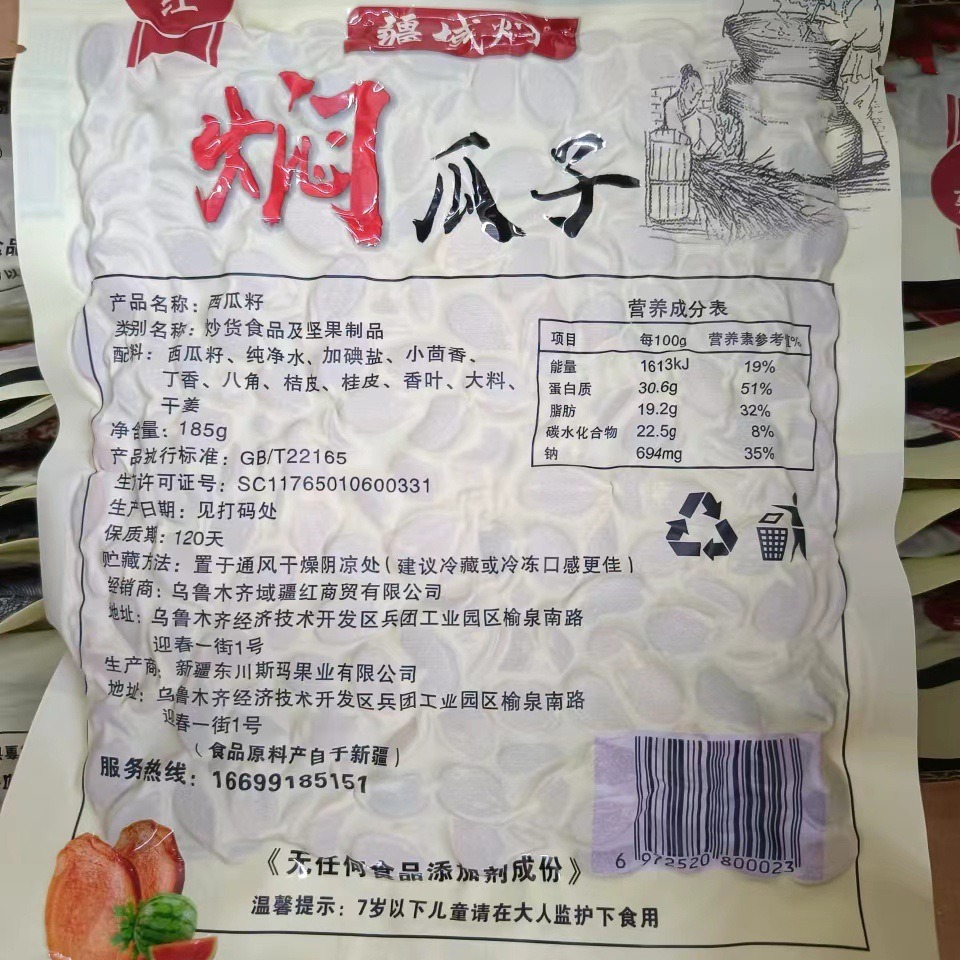 红
疆域灯
焖瓜子
产品名称：西瓜籽
类别名称：炒货食品及坚果制品
配料：西瓜籽、纯净水、加碘盐、小茴香、
丁香、八角、桔皮、桂皮、香叶、大料、
干姜
净含量：185g
产品执行标准：GB/T22165
生产许可证号：SC11765010600331
生产日期：见打码处
保质期：120天
贮藏方法：置于通风干燥阴凉处（建议冷藏或冷冻口感更佳）
经销商：乌鲁木齐域疆红商贸有限公司
地址：乌鲁木齐经济技术开发区兵团工业园区榆泉南路
迎春一街1号
生产商：新疆东川斯玛果业有限公司
地址：乌鲁木齐经济技术开发区兵团工业园区榆泉南路
迎春一街1号
（食品原料产自于新疆）
服务热线：16699185151
营养成分表
项目 每100g 营养素参考值%
能量 1613kJ 19%
蛋白质 30.6g 51%
脂肪 19.2g 32%
碳水化合物 22.5g 8%
钠 694mg 35%
6 972520 800023
《无任何食品添加剂成份》
温馨提示：7岁以下儿童请在大人监护下食用